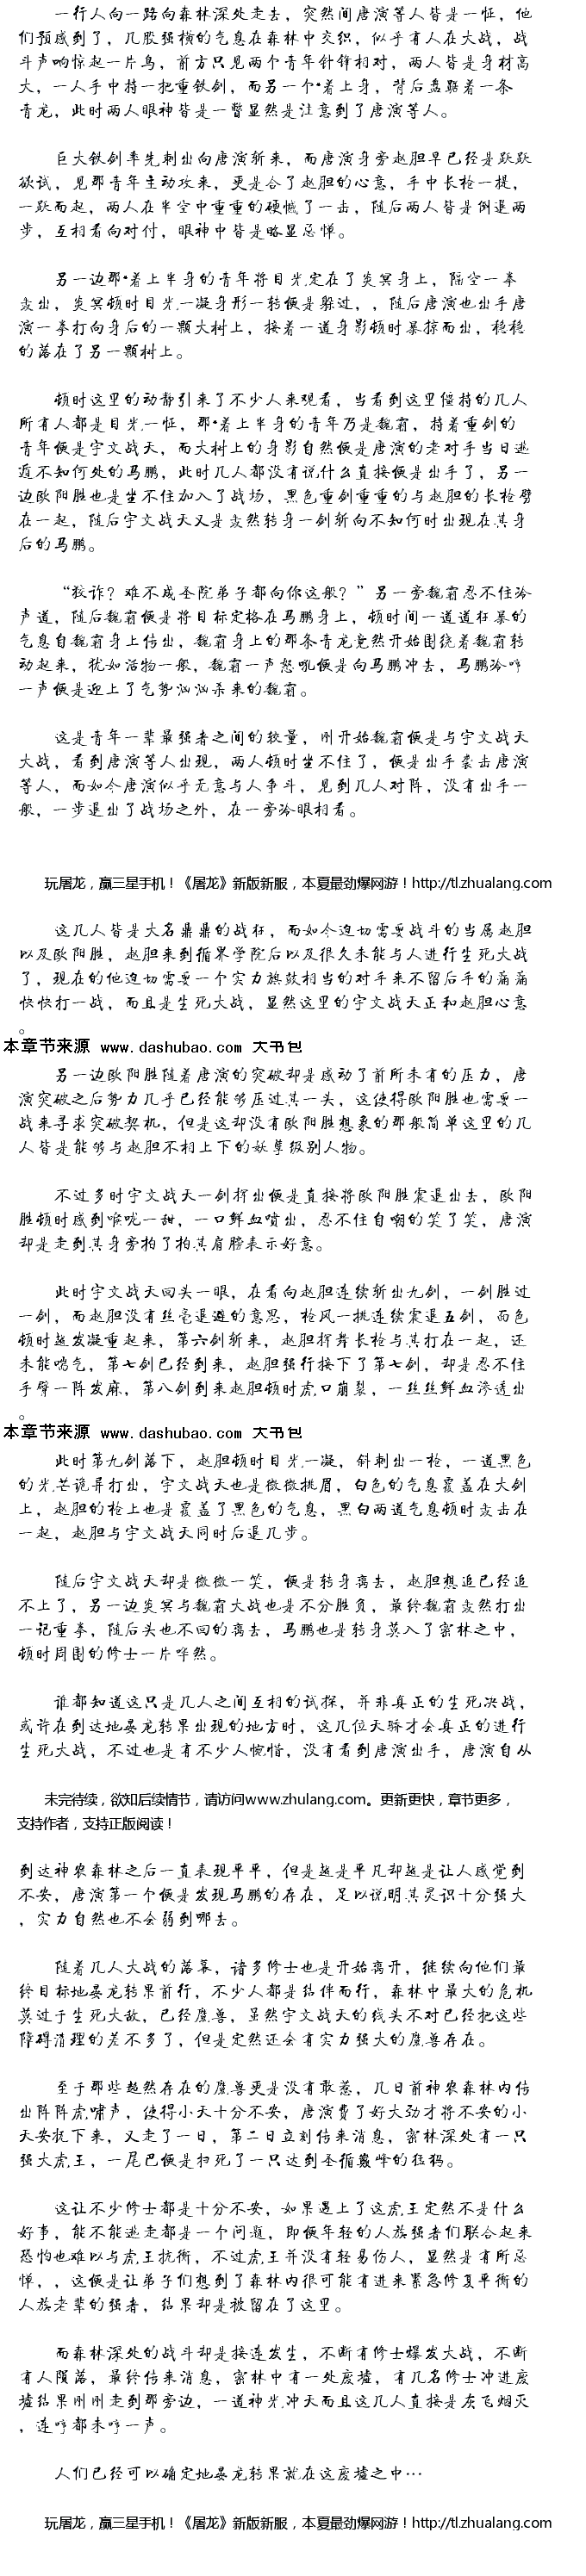 一行人向一路向森林深处走去，突然间唐演等人皆是一怔，他
们预感到了，几股强横的气息在森林中交织，似乎有人在大战，战
斗声响惊起一片鸟，前方只见两个青年针锋相对，两人皆是身材高
大，一人手中持一把重铁剑，而另一个·着上身，背后盘踞着一条
青龙，此时两人眼神皆是一瞥显然是注意到了唐演等人。
巨大铁剑率先刺出向唐演斩来，而唐演身旁赵胆早已经是跃跃
欲试，见那青年主动攻来，更是合了赵胆的心意，手中长枪一提，
一跃而起，两人在半空中重重的硬憾了一击，随后两人皆是倒退两
步，互相看向对付，眼神中皆是略显忌惮。
另一边那·着上半身的青年将目光定在了炎冥身上，隔空一拳
轰出，炎冥顿时目光一凝身形一转便是躲过，，随后唐演也出手唐
演一拳打向身后的一颗大树上，接着一道身影顿时暴掠而出，稳稳
的落在了另一颗树上。
顿时这里的动静引来了不少人来观看，当看到这里僵持的几人
所有人都是目光一怔，那·着上半身的青年乃是魏霸，持着重剑的
青年便是宇文战天，而大树上的身影自然便是唐演的老对手当日逃
遁不知何处的马鹏，此时几人都没有说什么直接便是出手了，另一
边欧阳胜也是坐不住加入了战场，黑色重剑重重的与赵胆的长枪劈
在一起，随后宇文战天又是轰然转身一剑斩向不知何时出现在其身
后的马鹏。
“狡诈？难不成圣院弟子都向你这般？”另一旁魏霸忍不住冷
声道，随后魏霸便是将目标定格在马鹏身上，顿时间一道道狂暴的
气息自魏霸身上传出，魏霸身上的那条青龙竟然开始围绕着魏霸转
动起来，犹如活物一般，魏霸一声怒吼便是向马鹏冲去，马鹏冷哼
一声便是迎上了气势汹汹杀来的魏霸。
这是青年一辈最强者之间的较量，刚开始魏霸便是与宇文战天
大战，看到唐演等人出现，两人顿时坐不住了，便是出手袭击唐演
等人，而如今唐演似乎无意与人争斗，见到几人对阵，没有出手一
般，一步退出了战场之外，在一旁冷眼相看。
玩屠龙，赢三星手机！《屠龙》新版新服，本夏最劲爆网游！http://tl.zhualang.com
这几人皆是大名鼎鼎的战狂，而如今迫切需要战斗的当属赵胆
以及欧阳胜，赵胆来到循界学院后以及很久未能与人进行生死大战
了，现在的他迫切需要一个实力旗鼓相当的对手来不留后手的痛痛
快快打一战，而且是生死大战，显然这里的宇文战天正和赵胆心意
。
本章节来源 www.dashubao.com 大书包
另一边欧阳胜随着唐演的突破却是感动了前所未有的压力，唐
演突破之后势力几乎已经能够压过其一头，这使得欧阳胜也需要一
战来寻求突破契机，但是这却没有欧阳胜想象的那般简单这里的几
人皆是能够与赵胆不相上下的妖孽级别人物。
不过多时宇文战天一剑挥出便是直接将欧阳胜震退出去，欧阳
胜顿时感到喉咙一甜，一口鲜血喷出，忍不住自嘲的笑了笑，唐演
却是走到其身旁拍了拍其肩膀表示好意。
此时宇文战天回头一眼，在看向赵胆连续斩出九剑，一剑胜过
一剑，而赵胆没有丝毫退避的意思，枪风一挑连续震退五剑，面色
顿时越发凝重起来，第六剑斩来，赵胆挥舞长枪与其打在一起，还
未能喘气，第七剑已经到来，赵胆强行接下了第七剑，却是忍不住
手臂一阵发麻，第八剑到来赵胆顿时虎口崩裂，一丝丝鲜血渗透出
。
本章节来源 www.dashubao.com 大书包
此时第九剑落下，赵胆顿时目光一凝，斜刺出一枪，一道黑色
的光芒诡异打出，宇文战天也是微微挑眉，白色的气息覆盖在大剑
上，赵胆的枪上也是覆盖了黑色的气息，黑白两道气息顿时轰击在
一起，赵胆与宇文战天同时后退几步。
随后宇文战天却是微微一笑，便是转身离去，赵胆想追已经追
不上了，另一边炎冥与魏霸大战也是不分胜负，最终魏霸轰然打出
一记重拳，随后头也不回的离去，马鹏也是转身莫入了密林之中，
顿时周围的修士一片哗然。
谁都知道这只是几人之间互相的试探，并非真正的生死决战，
或许在到达地晏龙转果出现的地方时，这几位天骄才会真正的进行
生死大战，不过也是有不少人惋惜，没有看到唐演出手，唐演自从
未完待续，欲知后续情节，请访问www.zhulang.com。更新更快，章节更多，
支持作者，支持正版阅读！
到达神农森林之后一直表现平平，但是越是平凡却越是让人感觉到
不安，唐演第一个便是发现马鹏的存在，足以说明其灵识十分强大
，实力自然也不会弱到哪去。
随着几人大战的落幕，诸多修士也是开始离开，继续向他们最
终目标地晏龙转果前行，不少人都是结伴而行，森林中最大的危机
莫过于生死大敌，已经魔兽，虽然宇文战天的线头不对已经把这些
障碍清理的差不多了，但是定然还会有实力强大的魔兽存在。
至于那些超然存在的魔兽更是没有敢惹，几日前神农森林内传
出阵阵虎啸声，使得小天十分不安，唐演费了好大劲才将不安的小
天安抚下来，又走了一日，第二日立刻传来消息，密林深处有一只
强大虎王，一尾巴便是扫死了一只达到圣循巅峰的猛犸。
这让不少修士都是十分不安，如果遇上了这虎王定然不是什么
好事，能不能逃走都是一个问题，即便年轻的人族强者们联合起来
恐怕也难以与虎王抗衡，不过虎王并没有轻易伤人，显然是有所忌
惮，，这便是让弟子们想到了森林内很可能有进来紧急修复平衡的
人族老辈的强者，结果却是被留在了这里。
而森林深处的战斗却是接连发生，不断有修士爆发大战，不断
有人陨落，最终传来消息，密林中有一处废墟，有几名修士冲进废
墟结果刚刚走到那旁边，一道神光冲天而且这几人直接是灰飞烟灭
，连哼都未哼一声。
人们已经可以确定地晏龙转果就在这废墟之中…
玩屠龙，赢三星手机！《屠龙》新版新服，本夏最劲爆网游！http://tl.zhualang.com